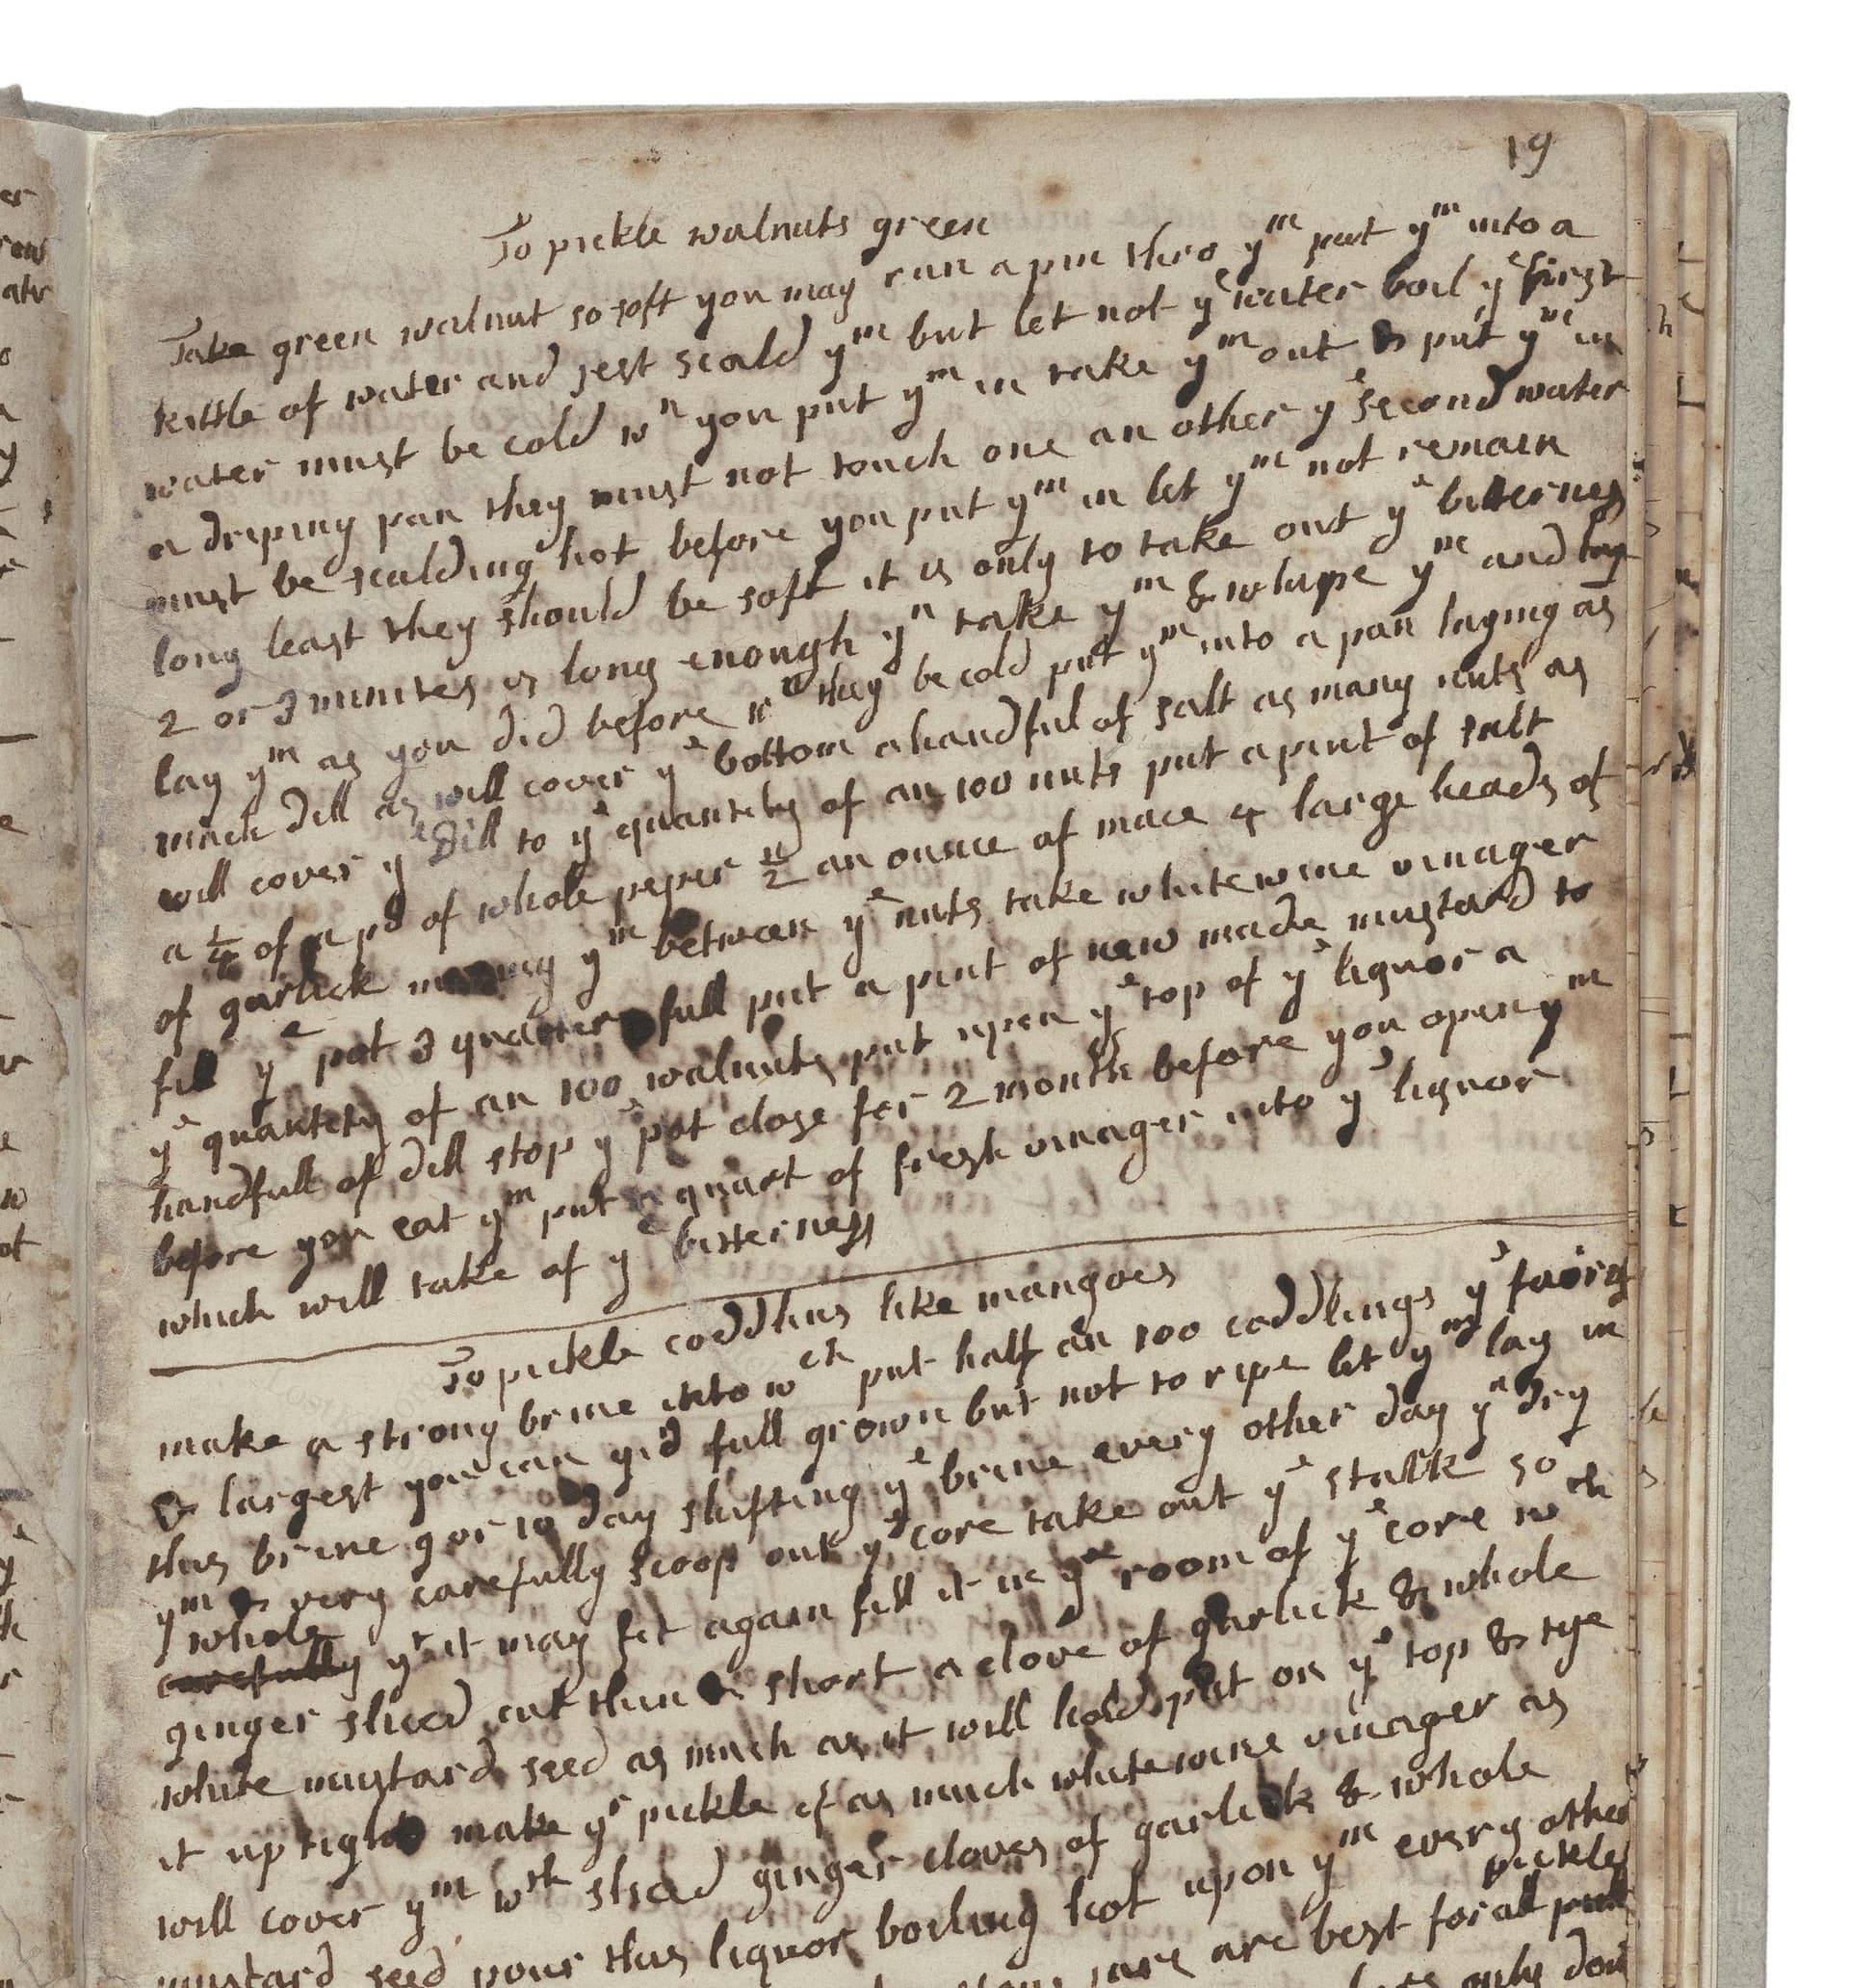 19
To pickle walnuts green
Take green walnut so soft you may run a pin thro yᵐ put yᵐ into a
kittle of water and jest scald yᵐ but let not yᵉ water boil yᵉ first
water must be cold wⁿ you put yᵐ in take yᵐ out & put yᵐ in
a driping pan they must not touch one an other yᵉ second water
must be scalding hot before you put yᵐ in let yᵐ not remain
long least they should be soft it is only to take out yᵉ bitternes
2 or 3 minites is long enough yⁿ take yᵐ & whipe yᵐ and lay
lay yᵐ as you did before wⁿ they be cold put yᵐ into a pan laying as
much dill as will cover yᵉ bottom a handful of salt as many nuts as
will cover yᵉ dill to yᵉ quantity of an 100 nuts put a pint of salt
a ¼ of a pᵈ of whole peper ½ an ounce of mace 4 large heads of
of garlick yᵐ between yᵉ nuts take whitewine vinager
fill yᵉ pot 3 quarters full put a pint of new made mustard to
yᵉ quantety of an 100 walnuts put upon yᵉ top of yᵉ liquor a
handfull of dill stop yᵉ pot close for 2 month before you open yᵐ
before you eat yᵐ put a quart of fresh vinager into yᵉ liquor
which will take of yᵉ bitterness
To pickle coddlins like mangoes
make a strong brine into wᶜʰ put half an 100 coddlings yᵉ
& largest you can full grown but not to ripe let yᵐ lay in
this brine 9 or 10 day shifting yᵉ brine every other day yⁿ dry
yᵐ & very carefully scoop out yᵉ core take out yᵉ stalk so
whole
carefully yᵗ it may fit again fill it in yᵉ room of yᵉ core wᵗʰ
ginger sliced cut thin & short a clove of garlick & whole
white mustard seed as much as it will hold put on yᵉ top & tye
it upright make yʳ pickle of as much whitewine vinager as
will cover yᵐ wᵗʰ sliced ginger cloves of garlick & whole
mustard seed pour this liquor boiling hot upon yᵐ every other
pickles
are best for all
only